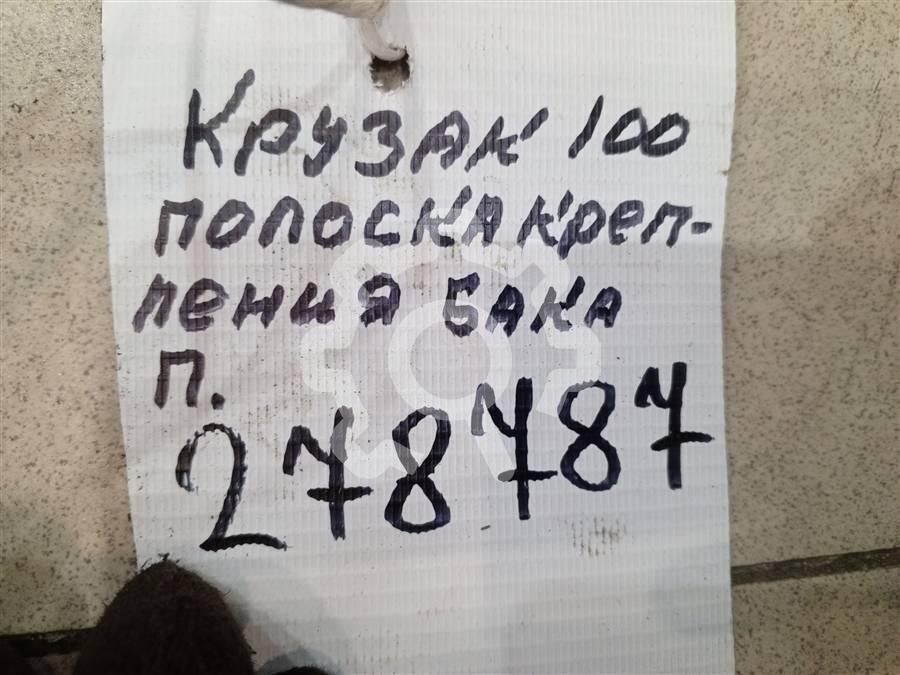 Крузак 100
полоска креп-
ления бака
П.
278787